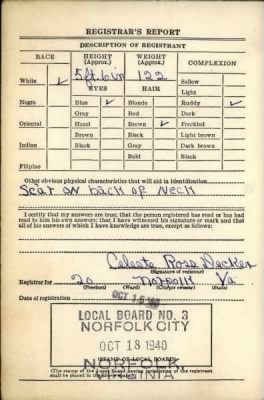 REGISTRAR'S REPORT
DESCRIPTION OF REGISTRANT
RACE HEIGHT (Approx.) WEIGHT (Approx.) COMPLEXION
White ✓ 5 ft. 6 in 122 Sallow
EYES HAIR Light
Negro Blue ✓ Blonde Ruddy ✓
Gray Red Dark
Oriental Hazel Brown ✓ Freckled
Brown Black Light brown
Indian Black Gray Dark brown
Bald Black
Filipino
Other obvious physical characteristics that will aid in identification
Scar on back of neck
I certify that my answers are true; that the person registered has read or has had
read to him his own answers; that I have witnessed his signature or mark and that
all of his answers of which I have knowledge are true, except as follows:
Celeste Rosa Decker
(Signature of registrar)
Registrar for 20 Norfolk Va
(Precinct) (Ward) (City or county) (State)
Date of registration OCT 16 1940
LOCAL BOARD NO. 3
NORFOLK CITY
OCT 18 1940
(STAMP OF LOCAL BOARD)
NORFOLK
VIRGINIA
(The stamp of the Local Board having jurisdiction of the registrant
shall be placed in the above space.)